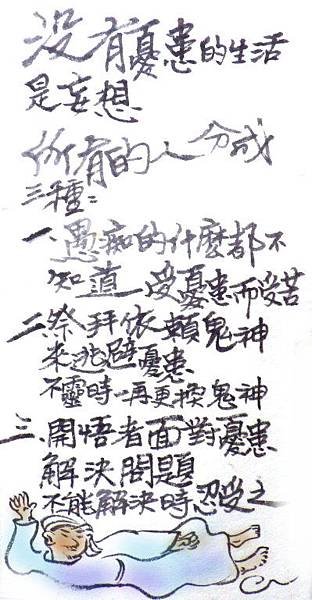 没有憂患的生活
是妄想
所有的人分成
三種：
一、愚痴的什麼都不
知道受憂患而受苦
二、祭拜依賴鬼神
來逃避憂患
不靈時一再更換鬼神
三、開悟者面對憂患
解決問題
不能解決時忍受之